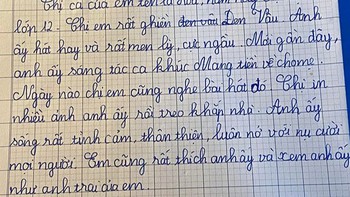 Chị cả của em tên là
lớp 12. Chị em rất ghiền đen vâu Đen Vâu. Anh
ấy hát hay và rất men lỳ, cực ngầu. Mới gần đây,
anh ấy sáng tác ca khúc Mang tiền về chome.
Ngày nào chị em cũng nghe bài hát đó. Chị in
nhiều ảnh anh ấy rồi treo khắp nhà. Anh ấy
sống rất tình cảm, thân thiện, luôn nở với nụ cười
mọi người. Em cũng rất thích anh ấy và xem anh ấy
như anh trai của em.